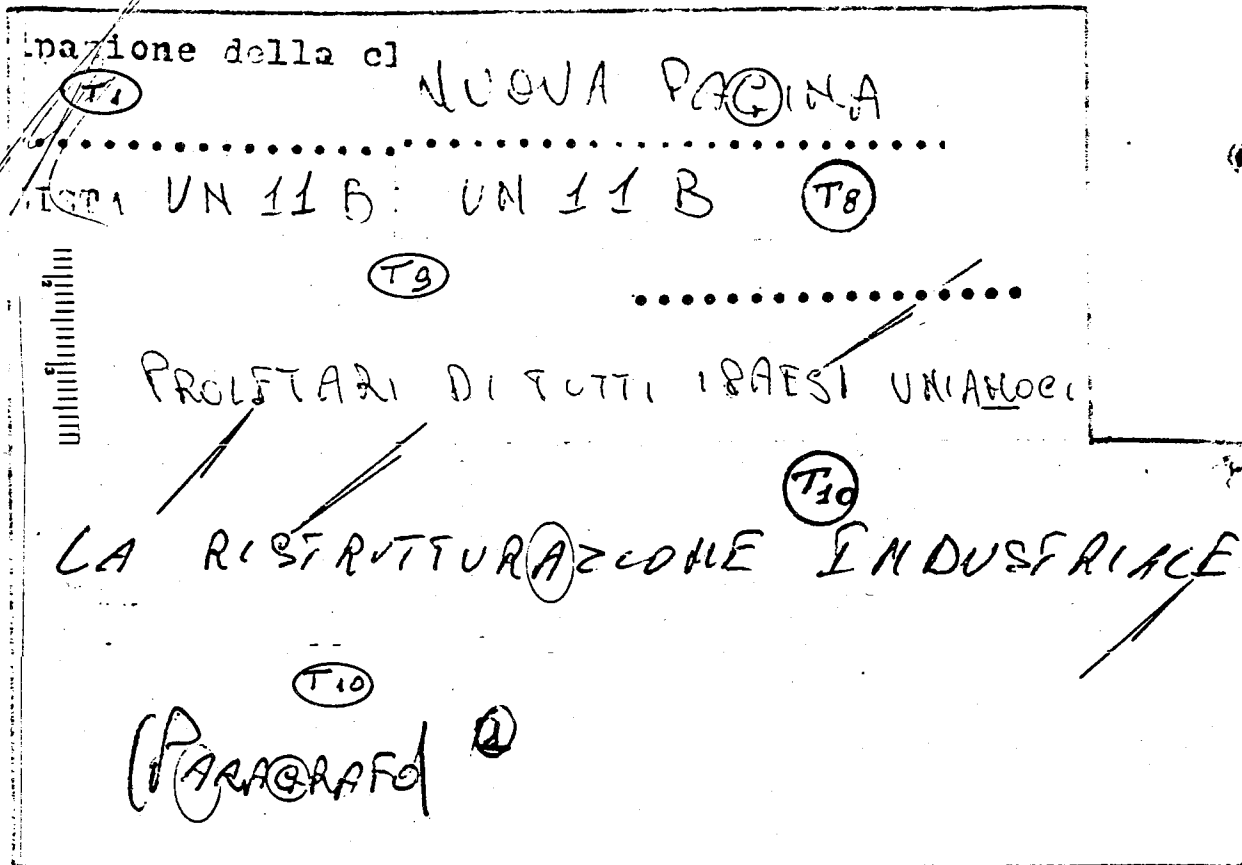 nazione della cl
T1
NUOVA PAGINA
UN 11 B: UN 11 B T8
T9
PROLETARI DI TUTTI I PAESI UNIAMOCI
T10
LA RISTRUTTURAZIONE INDUSTRIALE
T10
(PARAGRAFO)